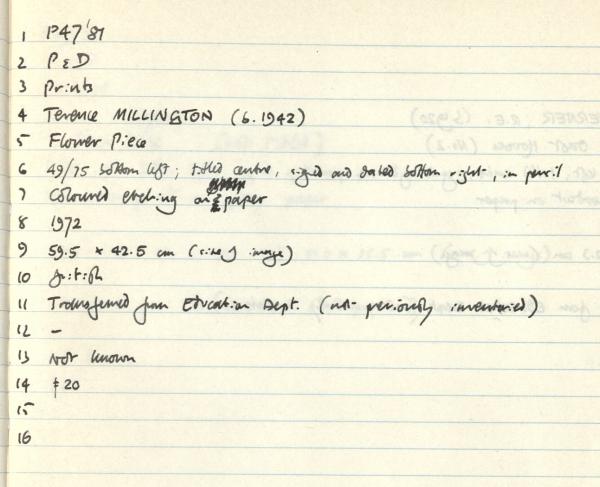 1 P47'81
2 P & D
3 Prints
4 Terence MILLINGTON (b. 1942)
5 Flower Piece
6 49/75 bottom left; titled centre, signed and dated bottom right, in pencil
7 Coloured etching on paper
8 1972
9 59.5 × 42.5 cm (size of image)
10 British
11 Transferred from Education Dept. (not previously inventoried)
12 –
13 Not known
14 £20
15
16